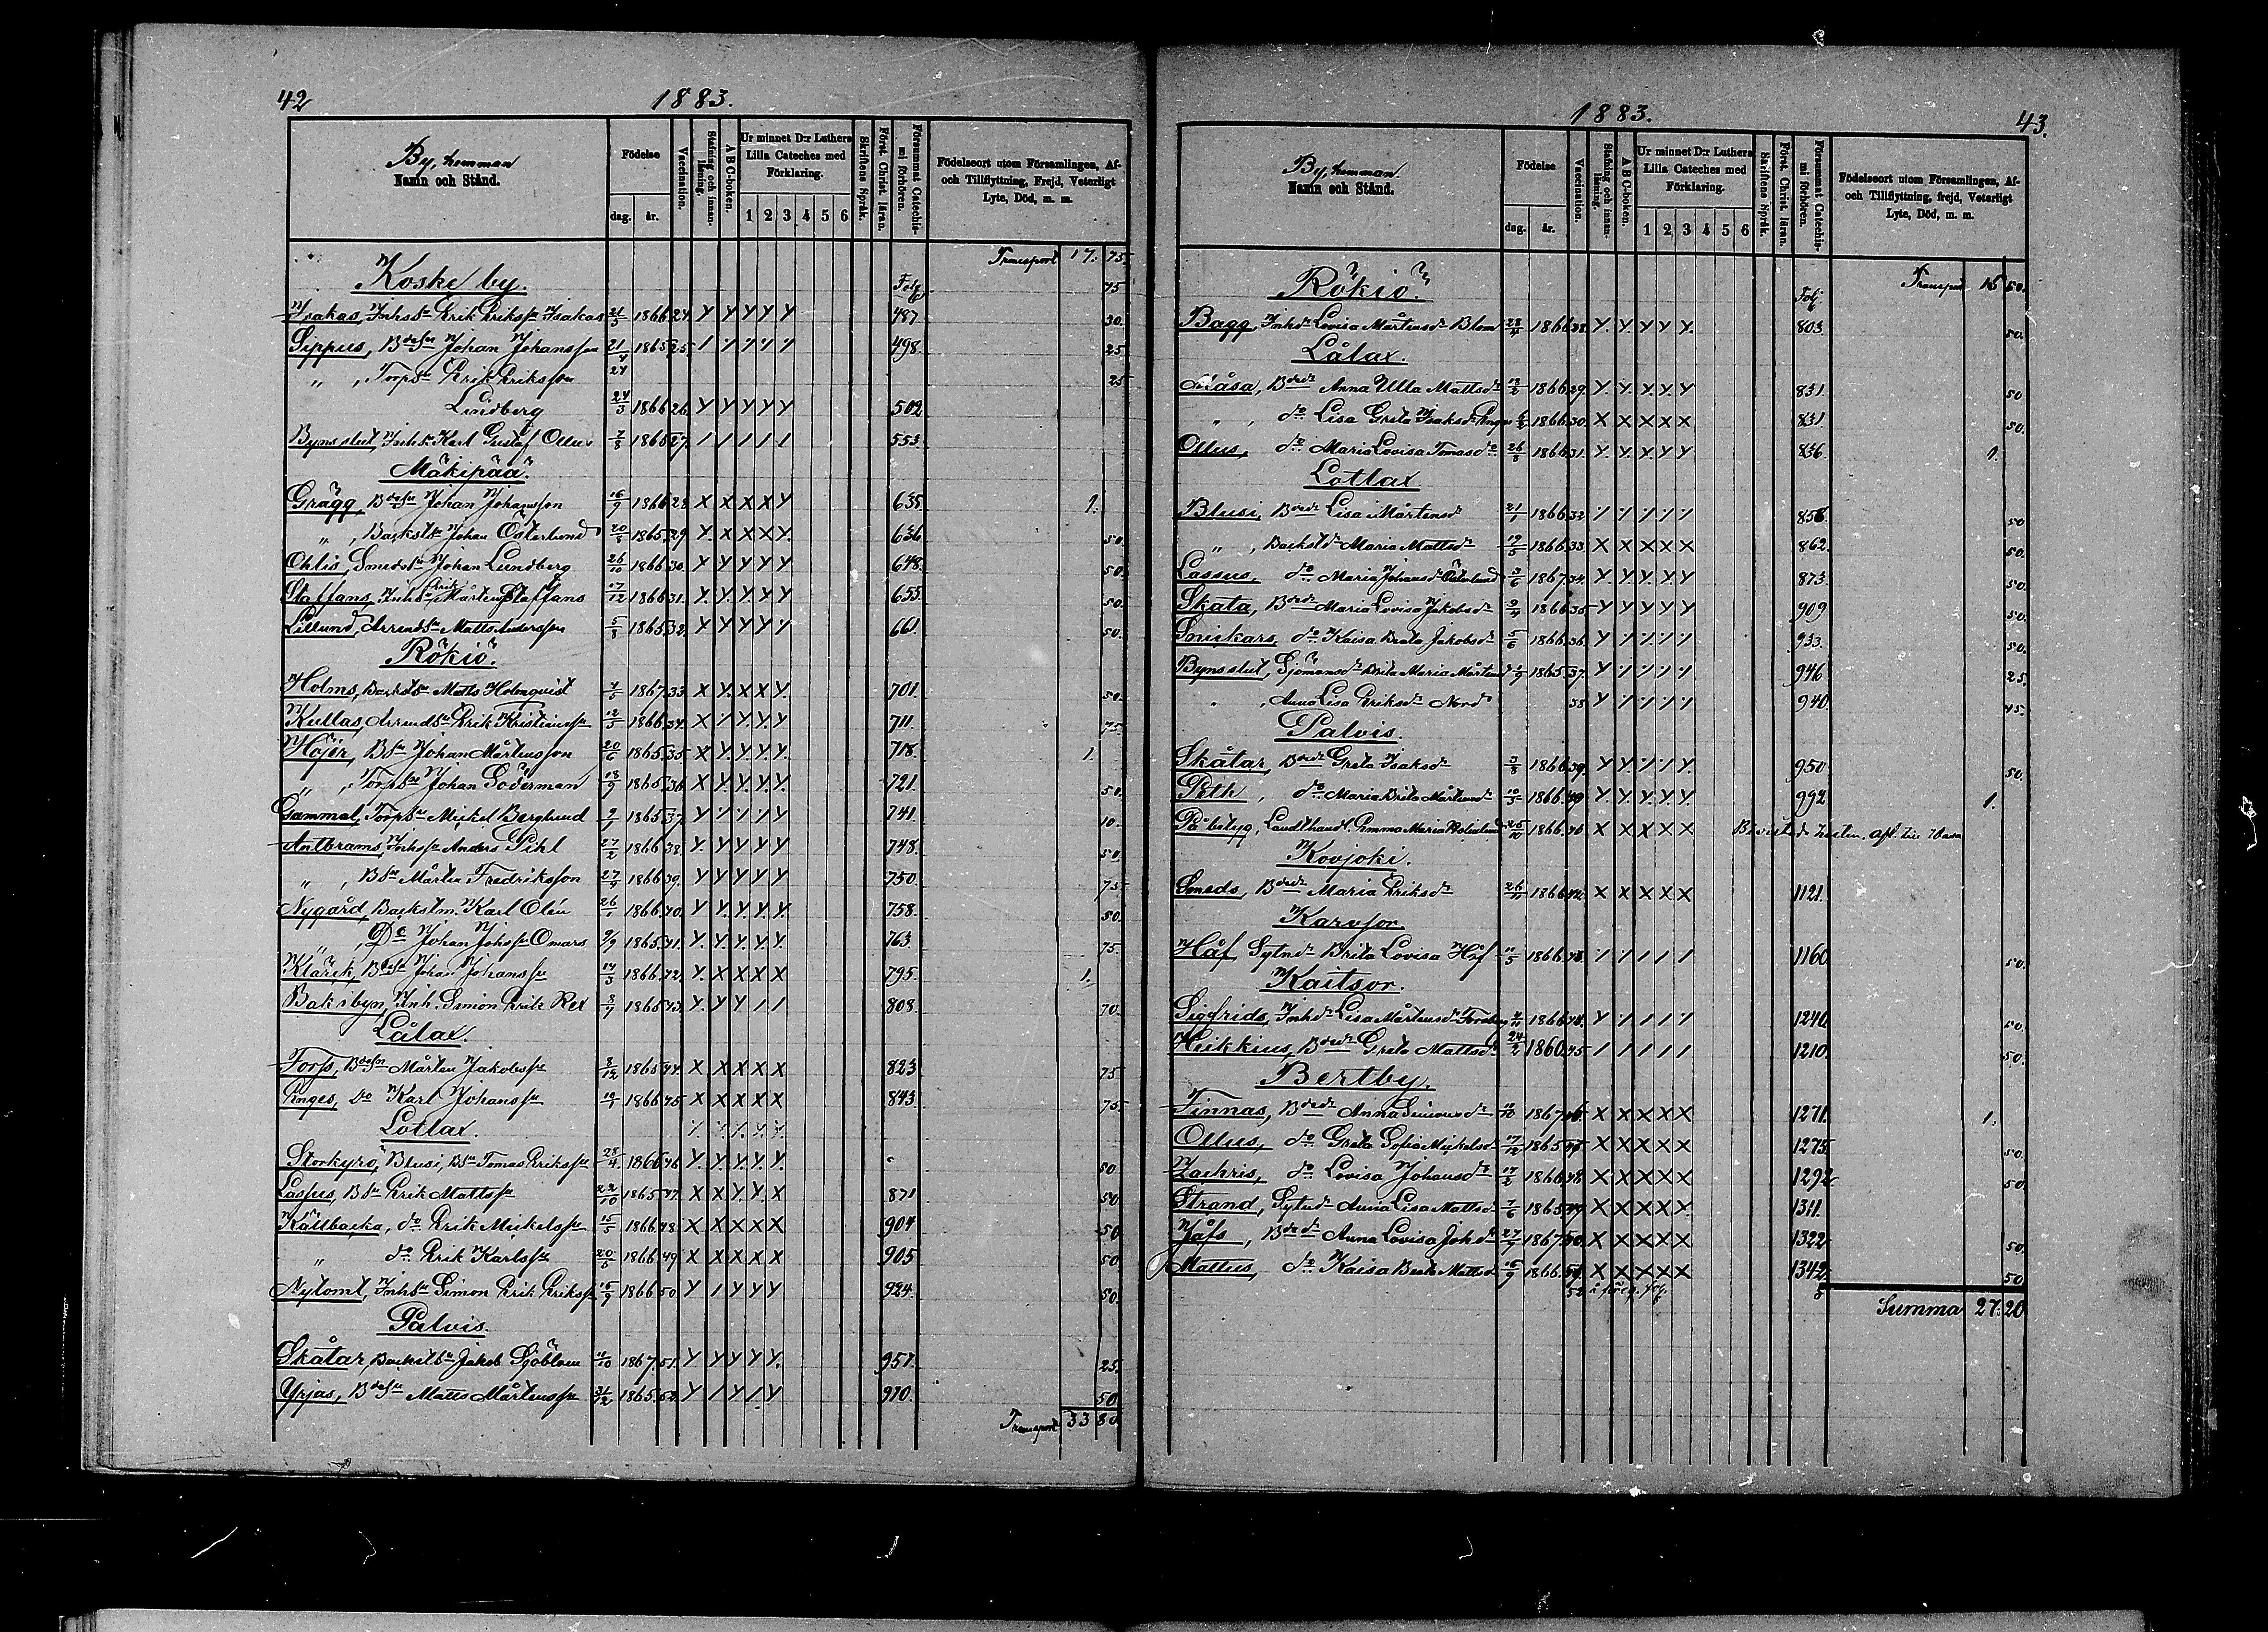 42
1883.
By, hemman
Namn och Stånd.
Födelse
dag. år.
Vaccination.
Stafning och innanläsning.
A B C-boken.
Ur minnet D:r Luthers Lilla Cateches med Förklaring.
1 2 3 4 5 6
Skriftens Språk.
Först. Christ. läran.
Försummat Catechismi förhören.
Födelseort utom Församlingen, Af- och Tillflyttning, Frejd, Veterligt Lyte, Död, m. m.
Transport 17. 75.
Koske by. Folj 45
Isakas, Inhs Erik Erikss Isakas 21/3 1866 24. Y Y Y Y Y 487 30.
Sippus, Bdesn Johan Johansson 21/4 1865 25. / / / / / 498. 25
" , Torps Erik Eriksson 24 25
Lindberg 24/3 1866 26. Y Y Y Y Y 502
Bynsslut, Inhs Karl Gustaf Ollus 7/8 1865 27. / / / / / 553.
Mäkipää.
Grägg, Bdesn Johan Johansson 16/9 1866 28 X X X X Y 635 1.
" , Backst Johan Österlund 20/8 1865 29 Y. X X X Y. 636 50.
Ohlis, Smeds Johan Lundberg 26/10 1866 30. Y Y Y Y Y 648. 50.
Staffans, Inhs Erik Mårten Staffans 17/12 1866 31. Y. Y. Y Y Y 655. 50.
Lillund, Arrends Matts Andersson 5/8 1865 32. Y Y Y Y Y 661. 50.
Rökiö.
Holms, Backst Matts Holmqvist 4/5 1867 33 X Y. X X Y. 701. 50.
Kullas, Arrends Erik Kristianss 12/3 1866 34. X Y. Y. Y. Y 711. 75.
Höjer, Bsn Johan Mårtensson 20/6 1865 35 X Y. Y. Y. Y. 718. 1.
" , Torps Johan Söderman 13/9 1865 36 X Y. Y. Y. Y. 721. 50.
Gammal, Torps Mickel Berglund 9/1 1865 37. Y / / / Y 741. 10.
Antbrams, Inhss Anders Pihl 27/2 1866 38. Y. Y Y Y Y 748. 50.
" , Bsn Mårten Fredriksson 27/9 1866 39. Y Y Y Y Y 750. 75
Nygård, Backstm. Karl Olén 26/1 1866 40. Y Y. Y. Y. Y. 758. 50.
" , Do Johan Johss Omars 9/9 1865 41. Y. Y. Y. Y. Y. 763. 75.
Klärik, Bdesn Johan Johanss 14/3 1866 42. Y. X X X X 795. 1.
Bakibyn, Inh. Simon Erik Rex 8/7 1865 43. Y. Y Y / / 808. 70.
Lålax.
Forss, Bdesn Mårten Jakobss 8/12 1865 44. X X X X X 823 75
Enges, Do Karl Johanss 10/1 1866 45 X X X X X 843. 75.
Lotlax.
Storkyro, Blusi, Bsn Tomas Erikss 28/4. 1866 46 Y. Y. Y. Y. Y. 50
Laspus, Bsn Erik Mattss 22/10 1865 47. X X Y. Y. X 871 50
Källbacka, do Erik Mickelss 15/5 1866 48. X X X X X 904 50
" do Erik Karlss 20/5 1866 49 X X X X X 905 50
Nytomt, Inhs Simon Erik Erikss 15/7 1866 50 Y / Y Y Y 924. 50.
Palvis.
Skåtar, Backst Jakob Sjöblom 11/10 1867. 51. Y Y Y Y Y. 957. 25.
Yrjas, Bdesn Matts Mårtenss 31/12 1865. 52. Y / Y / Y 970. 50
Transport 33 80
1883.
43.
By, hemman.
Namn och Stånd.
Födelse
dag. år.
Vaccination.
Stafning och innanläsning.
A B C-boken.
Ur minnet D:r Luthers Lilla Cateches med Förklaring.
1 2 3 4 5 6
Skriftens Språk.
Först. Christ. läran.
Försummat Catechismi förhören.
Födelseort utom Församlingen, Af- och Tillflyttning, frejd, Veterligt Lyte, Död, m. m.
Transport 15 50.
Rökiö. Folj
Bagg, Inhdr Lovisa Mårtensdr Blom 23/4 1866 28. Y. Y. Y. Y Y. 803. 50.
Lålax.
Måsa, Bdedr Anna Ulla Mattsdr 13/2 1866 29. Y. Y. Y. Y. Y 831. 50
" , do Lisa Greta Isaksdr Enges 1866 30. X X X X X 831. 50.
Ollus, do Maria Lovisa Tomasdr 26/8 1866 31. Y. Y. Y. Y Y 836. 1.
Lotlax
Blusi, Bdedr Lisa Mårtensdr 21/1 1866 32 / / / / / 858. 50
" , Backstdr Maria Mattsdr 19/5 1866 33. X X X X X 862. 50.
Lassus, do Maria Johansdr Österlund 3/6 1867. 34. Y. Y Y. Y. Y 873. 50
Skata, Bdedr Maria Lovisa Jakobsdr 9/4 1866 35 Y Y Y Y Y 909 50.
Snickars, do Kaisa Brita Jakobsdr 5/6 1866 36. Y / / / / 933. 50.
Bynsslut, Sjömansdr Brita Maria Mårtensdr 1865 37. Y / / / / 946 25.
" , Anna Lisa Eriksdr Nord 38 Y / / / / 940. 45.
Palvis.
Skåtar, Bdedr Greta Isaksdr 3/8 1866 39. Y Y / / Y. 950 50.
Peth, do Maria Brita Mårtensdr 10/3 1866 40 Y. Y. Y. Y. Y. 992. 1.
Påbstyg, Landthandl. Emma Maria 25/10 1866 X X X X X Bevistade kosten. afl. till Wasa
Kovjoki.
Smeds, Bdedr Maria Eriksdr 26/11 1866 42. X X X X X 1121.
Karvsor.
Håf, Sytndr Brita Lovisa Håf 11/5 1866 43 / / / / / 1160. 50.
Kaitsor.
Sigfrids, Inhdr Lisa Mårtensdr Forsberg 4/11 1866 44. Y / / / / 1240. 50.
Heikkius, Bdedr Greta Mattsdr 24/2 1860. 45 / / / / / 1210. 50.
Bertby.
Finnas, Bdedr Anna Simonsdr 12/10 1867 46 X X X X X 1271. 1.
Ollus, do Greta Sofia Mickelsdr 17/12 1865 47 X X X X X 1275. 50.
Zachris, do Lovisa Johansdr 17/2 1866 48 X X X X X 1292 50.
Strand, Sytndr Anna Lisa Mattsdr 7/6 1865 49 X X X X Y. 1311.
Jåfs, Bdedr Anna Lovisa Johdr 27/7 1867. 50. X X X X X 1322 50.
Mattus, do Kaisa Brita Mattsdr 16/9 1866. 51. X X X X X 1342. 50
52 å föreg. folj.
Summa 27. 20